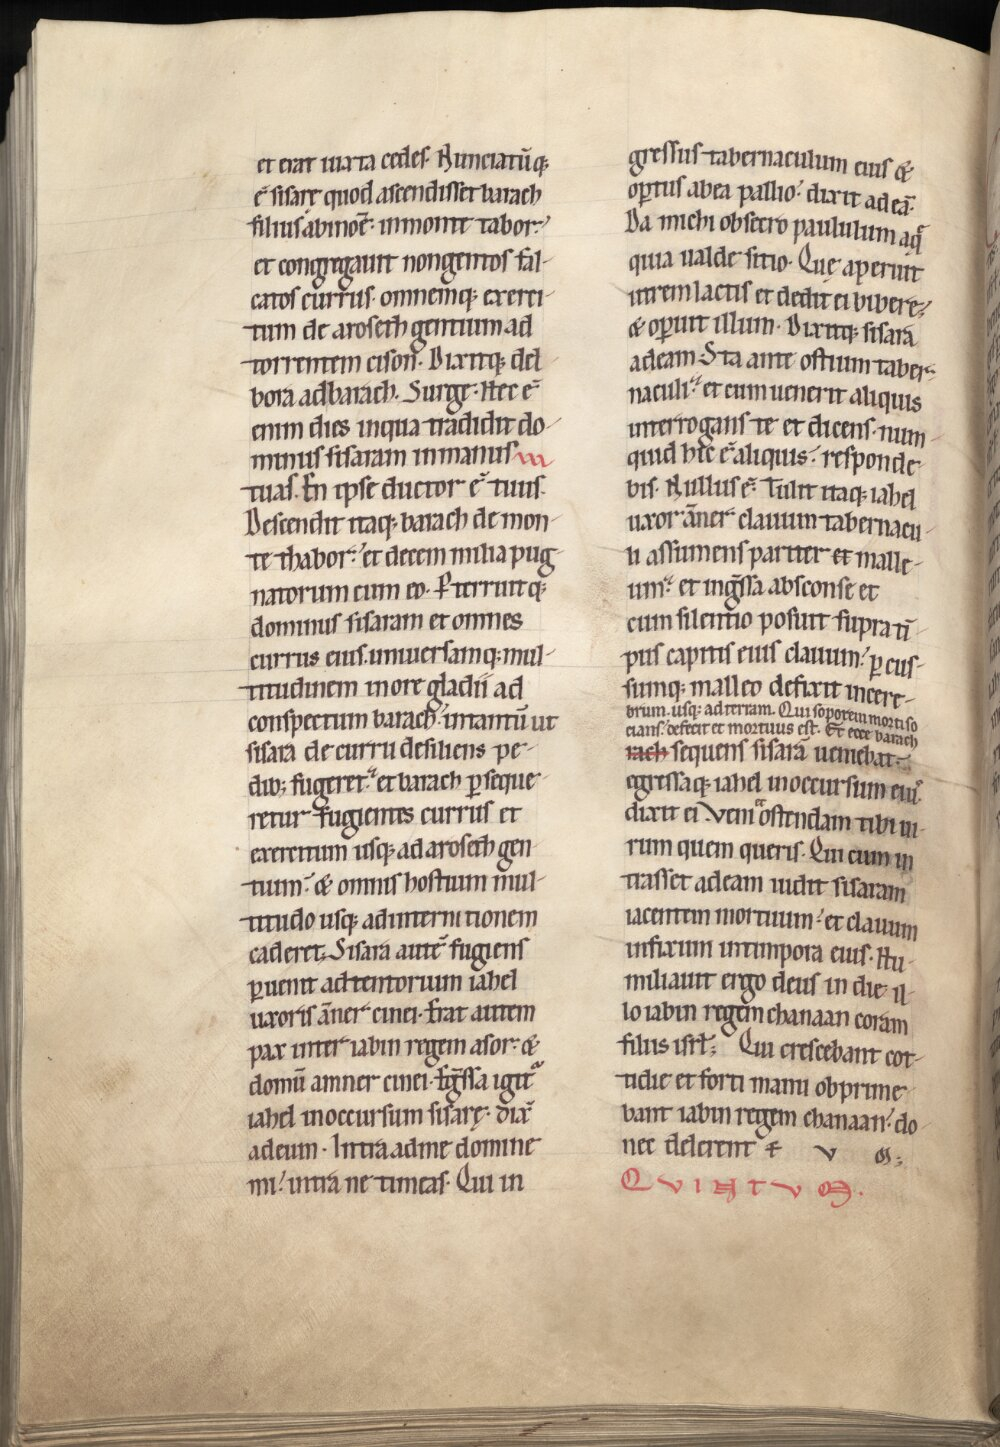 et erat iuxta cedes. Nunciatūq;
ē sisarę quod ascendisset barach
filius abinoē. in monte tabor.
et congregauit nongentos fal-
catos currus. omnemq; exerci-
tum de aroseth gentium ad
torrentem cison. Dixitq; del
bora ad barach. Surge. Hec ē
enim dies in qua tradidit do-
minus sisaram in manus
tuas. En ipse ductor ē tuus.
Descendit itaq; barach de mon-
te thabor. et decem milia pug
natorum cum eo. Perterruitq;
dominus sisaram et omnes
currus eius. uniuersamq; mul-
titudinem in ore gladii ad
conspectum barach. intantū ut
sisara de curru desiliens pe-
dib; fugeret. et barach ꝑseque-
retur fugientes currus et
exercitum usq; ad aroseth gen-
tium. & omnis hostium mul-
titudo usq; ad interni tionem
caderet. Sisara autē fugiens
ꝑuenit ad tentorium iahel
uxoris āner cinei. Erat autem
pax inter iabin regem asor. &
domū amner cinei. Egssa igit
iahel in occursum sisarę. dix̄
ad eum. Intra ad me domine
mi. intra ne timeas. Qui in
gressus tabernaculum eius &
optus ab ea pallio. dixit ad eā.
Da michi obsecro paululum aq
quia ualde sitio. Quę aperuit
utrem lactis et dedit ei bibere.
& operuit illum. Dixitq; sisara
ad eam Sta ante ostium taber-
naculi. et cum uenerit aliquis
interrogans te et dicens. num-
quid hic ē aliquis. responde-
bis. Nullus ē. Tulit itaq; iahel
uxor āner clauum tabernacu-
li assumens pariter et malle-
um. et ingssa absconse et
cum silentio posuit supra tī-
pus capitis eius clauum. ꝑcus-
sumq; malleo defixit in cere-
brum. usq; ad terram. Qui soporem morti so
cians. defecit et mortuus est. Et ecce barach
rach sequens sisarā ueniebat.
egressaq; iahel in occursum eiꝰ.
dixit ei Veni & ostendam tibi ui-
rum quem queris. Qui cum in
trasset ad eam uidit sisaram
iacentem mortuum. et clauum
infixum in timpora eius. Hu-
miliauit ergo deus in die il-
lo iabin regem chanaan coram
filiis isrl. Qui crescebant cot-
tidie et forti manu obprime-
bant iabin regem chanaan. do-
nec delerent E V M;
QVINTVM.